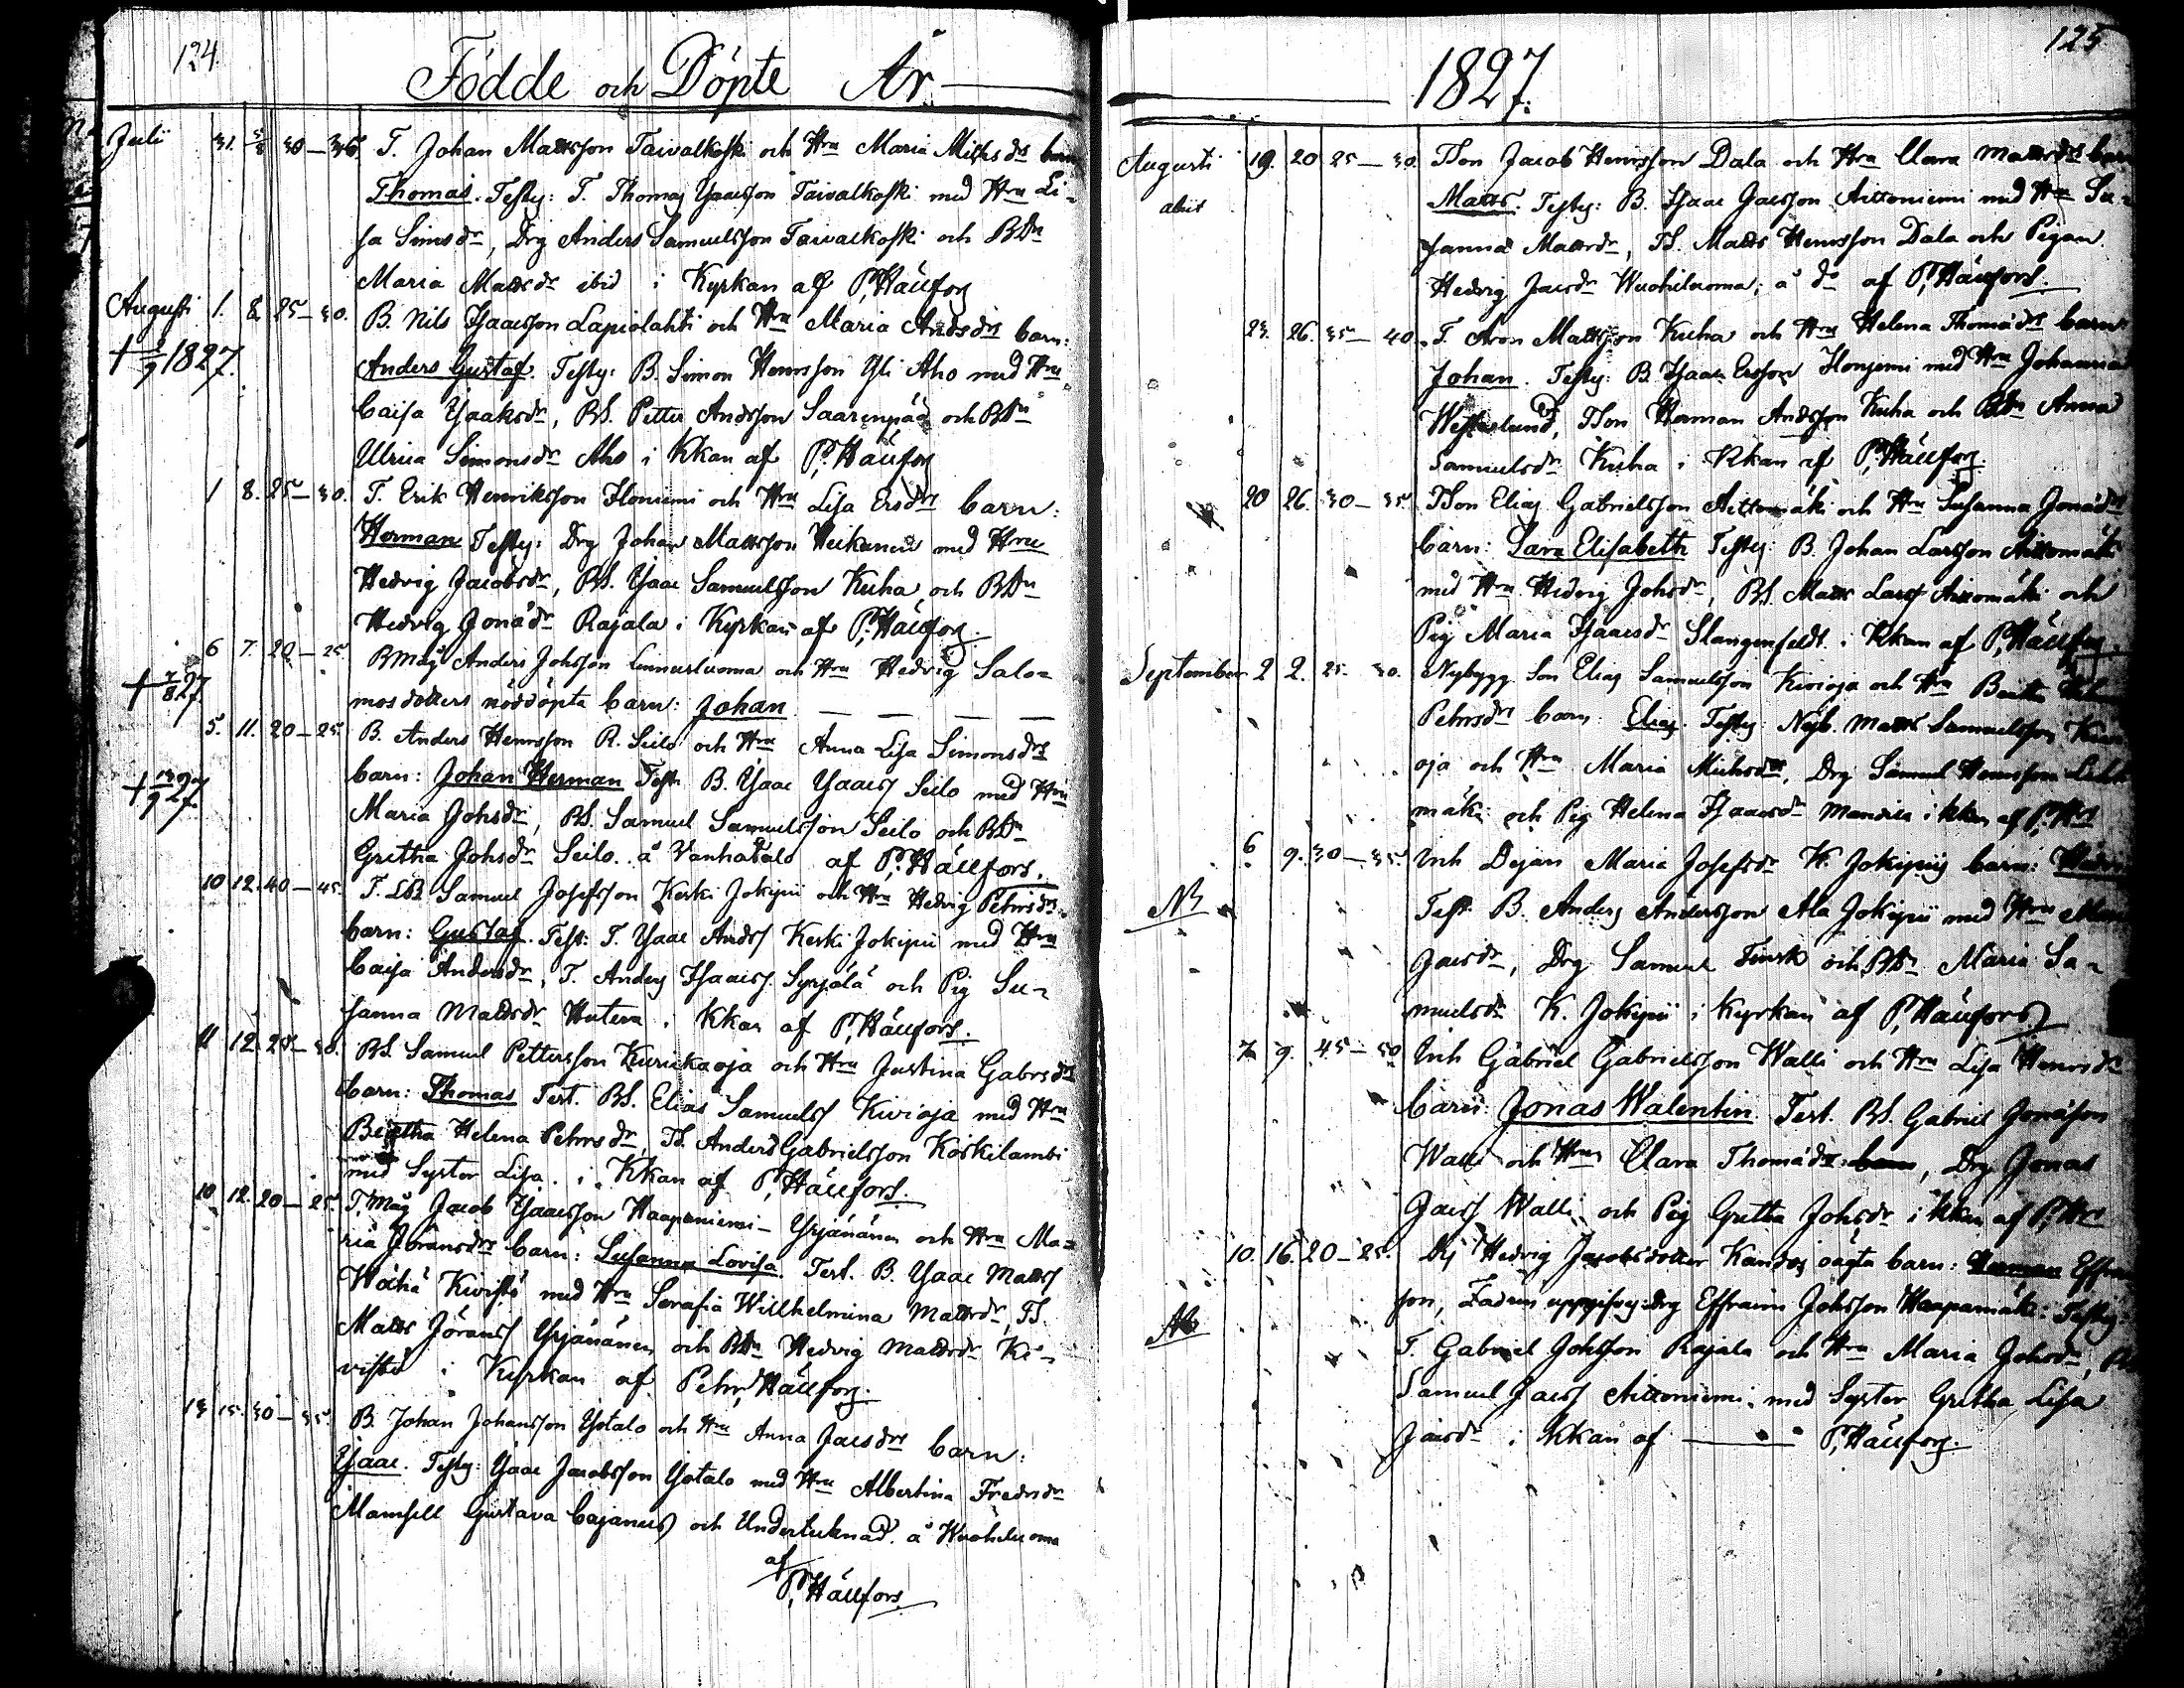 124
Födde och Döpte År
Julii 31. 5/8 30–35 T. Johan Mattsson Taivalkoski och Hru Maria Micksdrs barn
Thomas. Testes: T. Thomas Isaacsson Taivalkoski med Hru Li-
sa Simsdr, Drg Anders Samuelsson Taivalkoski och BDr
Maria Mattsdr ibid i Kyrkan af P. Hällfors
Augusti 1. 8. 25–30. B. Nils Isaacsson Lapiolahti och Hru Maria Andsdrs barn:
+ 2/9 1827. Anders Gustaf. Testes: B. Simon Henrsson Yli Aho med Hru
Caisa Isaaksdr, BS. Petter Andsson Saarenpää och BDr
Ulrica Simonsdr Aho i Kkan af P. Hällfors
1 8. 25–30. T. Erik Henriksson Honiemi och Hru Lisa Ersdrs barn:
Herman Testes: Drg Johan Mattsson Heikinen med Hru
Hedvig Jacobsdr, BS. Isaac Samuelsson Kuha, och BDr
Hedvig Jonædr Rajala i Kyrkan af P. Hällfors.
6 7. 20–25. Bmåg Anders Johsson Linnusluoma och Hru Hedvig Salo-
+ 7/8 27. mosdotters nöddöpta barn: Johan — — — —
5. 11. 20–25. B. Anders Henrsson R. Seilo och Hru Anna Lisa Simonsdrs
+ 13/9 27. barn: Johan Herman Test. B. Isaac Isaacss Seilo med Hru
Maria Johsdr, BS. Samuel Samuelsson Seilo och BDr
Gretha Johsdr Seilo. å Vanhatalo af P. Hällfors.
10 12. 40–45. T. Samuel Josefsson Keski Jokipii och Hru Hedvig Pehrsdrs
barn: Gustaf. Test: T. Isaac Andss Keski Jokipii med Hru
Caisa Andersdr, T. Anders Isaacss. Syrjälä och Pig Su-
sanna Mattsdr Hutera i Kkan af P. Hällfors.
11 12. 25–30. BS. Samuel Pettersson Kurikaoja och Hru Justina Gabrsdrs
barn: Thomas Test. BS. Elias Samuelss Kivioja med Hru
Beatha Helena Pehrsdr, TS. Anders Gabrielsson Koskilambi
med Syster Lisa. i Kkan af P. Hällfors.
10 12. 20–25. T.måg Jacob Isaacsson Haapaniemi – Yrjänänen och Hru Ma-
ria Jöransdrs barn: Susanna Lovisa. Test. B. Isaac Mattss
Wähä Kivistö med Hru Serafia Willhelmina Mattsdr, TS.
Matts Jöranss Yrjänänen och BDr Hedvig Mattsdr Ki-
vistö i Kyrkan af Pehr Hällfors.
13 15. 30–35. B. Johan Johansson Ylitalo och Hru Anna Jacsdrs barn:
Isaac. Testes: Isaac Jacobsson Ylitalo med Hru Albertina Fredrsdr
Mamsell Gustava Cajanus och Undertecknad. å Wuohiluoma
af P. Hällfors.
125
1827.
Augusti 19. 20 25–30. TSon Jacob Henrsson Dala och Hru Clara Mattsdrs barn
Matts. Testes: B. Isaac Jacsson Aittoniemi med Hru Su-
sanna Mattsdr, TS. Matts Henrsson Dala och Pigan
Hedvig Jacsdr Wuohiluoma; å do af P. Hällfors.
23. 26. 35–40. T. Aron Mattsson Kuha och Hru Helena Thomædrs barn
Johan. Testes: B. Isaac Ersson Honjemi med Hru Johanna
Westerlund, TSon Herman Andsson Kuha och BDr Anna
Samuelsdr Kuha i Kkan af P. Hällfors
20 26. 30–35. TSon Elias Gabrielsson Aittomäki och Hru Susanna Jonædrs
barn: Sara Elisabeth Testes: B. Johan Larsson Aittomäki
med Hru Hedvig Johsdr, BS. Matts Larss Aittomäki och
Pig Maria Isaacsdr Slangenfeldt. i Kkan af P. Hällfors.
September 2 2. 25. 30. Nybygg Son Elias Samuelsson Kivioja och Hru
Pehrsdrs barn: Elias. Testes: Nyb. Matts Samuelsson
oja och Hru Maria Michsdr, Drg Samuel Henrsson
mäki och Pig Helena Isaacsdr Mandila i kkan af P. Hfs
6 9. 30–35. Inh Dejan Maria Josefsdr K. Jokipiis barn:
NB Test. B. Anders Andersson Ala Jokipii med Hru
Jacsdr, Drg Samuel Finsk och BDr Maria Sa-
muelsdr K. Jokipii i Kyrkan af P. Hällfors
7. 9. 45–50. Inh Gabriel Gabrielsson Walli och Hru Lisa Henrsdrs
barn: Jonas Walentin Test. BS. Gabriel Jonæson
Walli och Hru Clara Thomædr, Drg Jonas
Jacss Walli och Pig Gretha Johsdr i kkan af P. Hfs
10. 16. 20–25. Hedvig Jacobsdotter Kandos oägta barn: Herman
NB son, Fadren uppgifves: Drg Effraim Johsson Haapamäki: Testes
T. Gabriel Johsson Rajala och Hru Maria Johsdr,
Samuel Jacss Aittoniemi, med Syster Gretha Lisa
Jacsdr i Kkan af —— P. Hällfors.